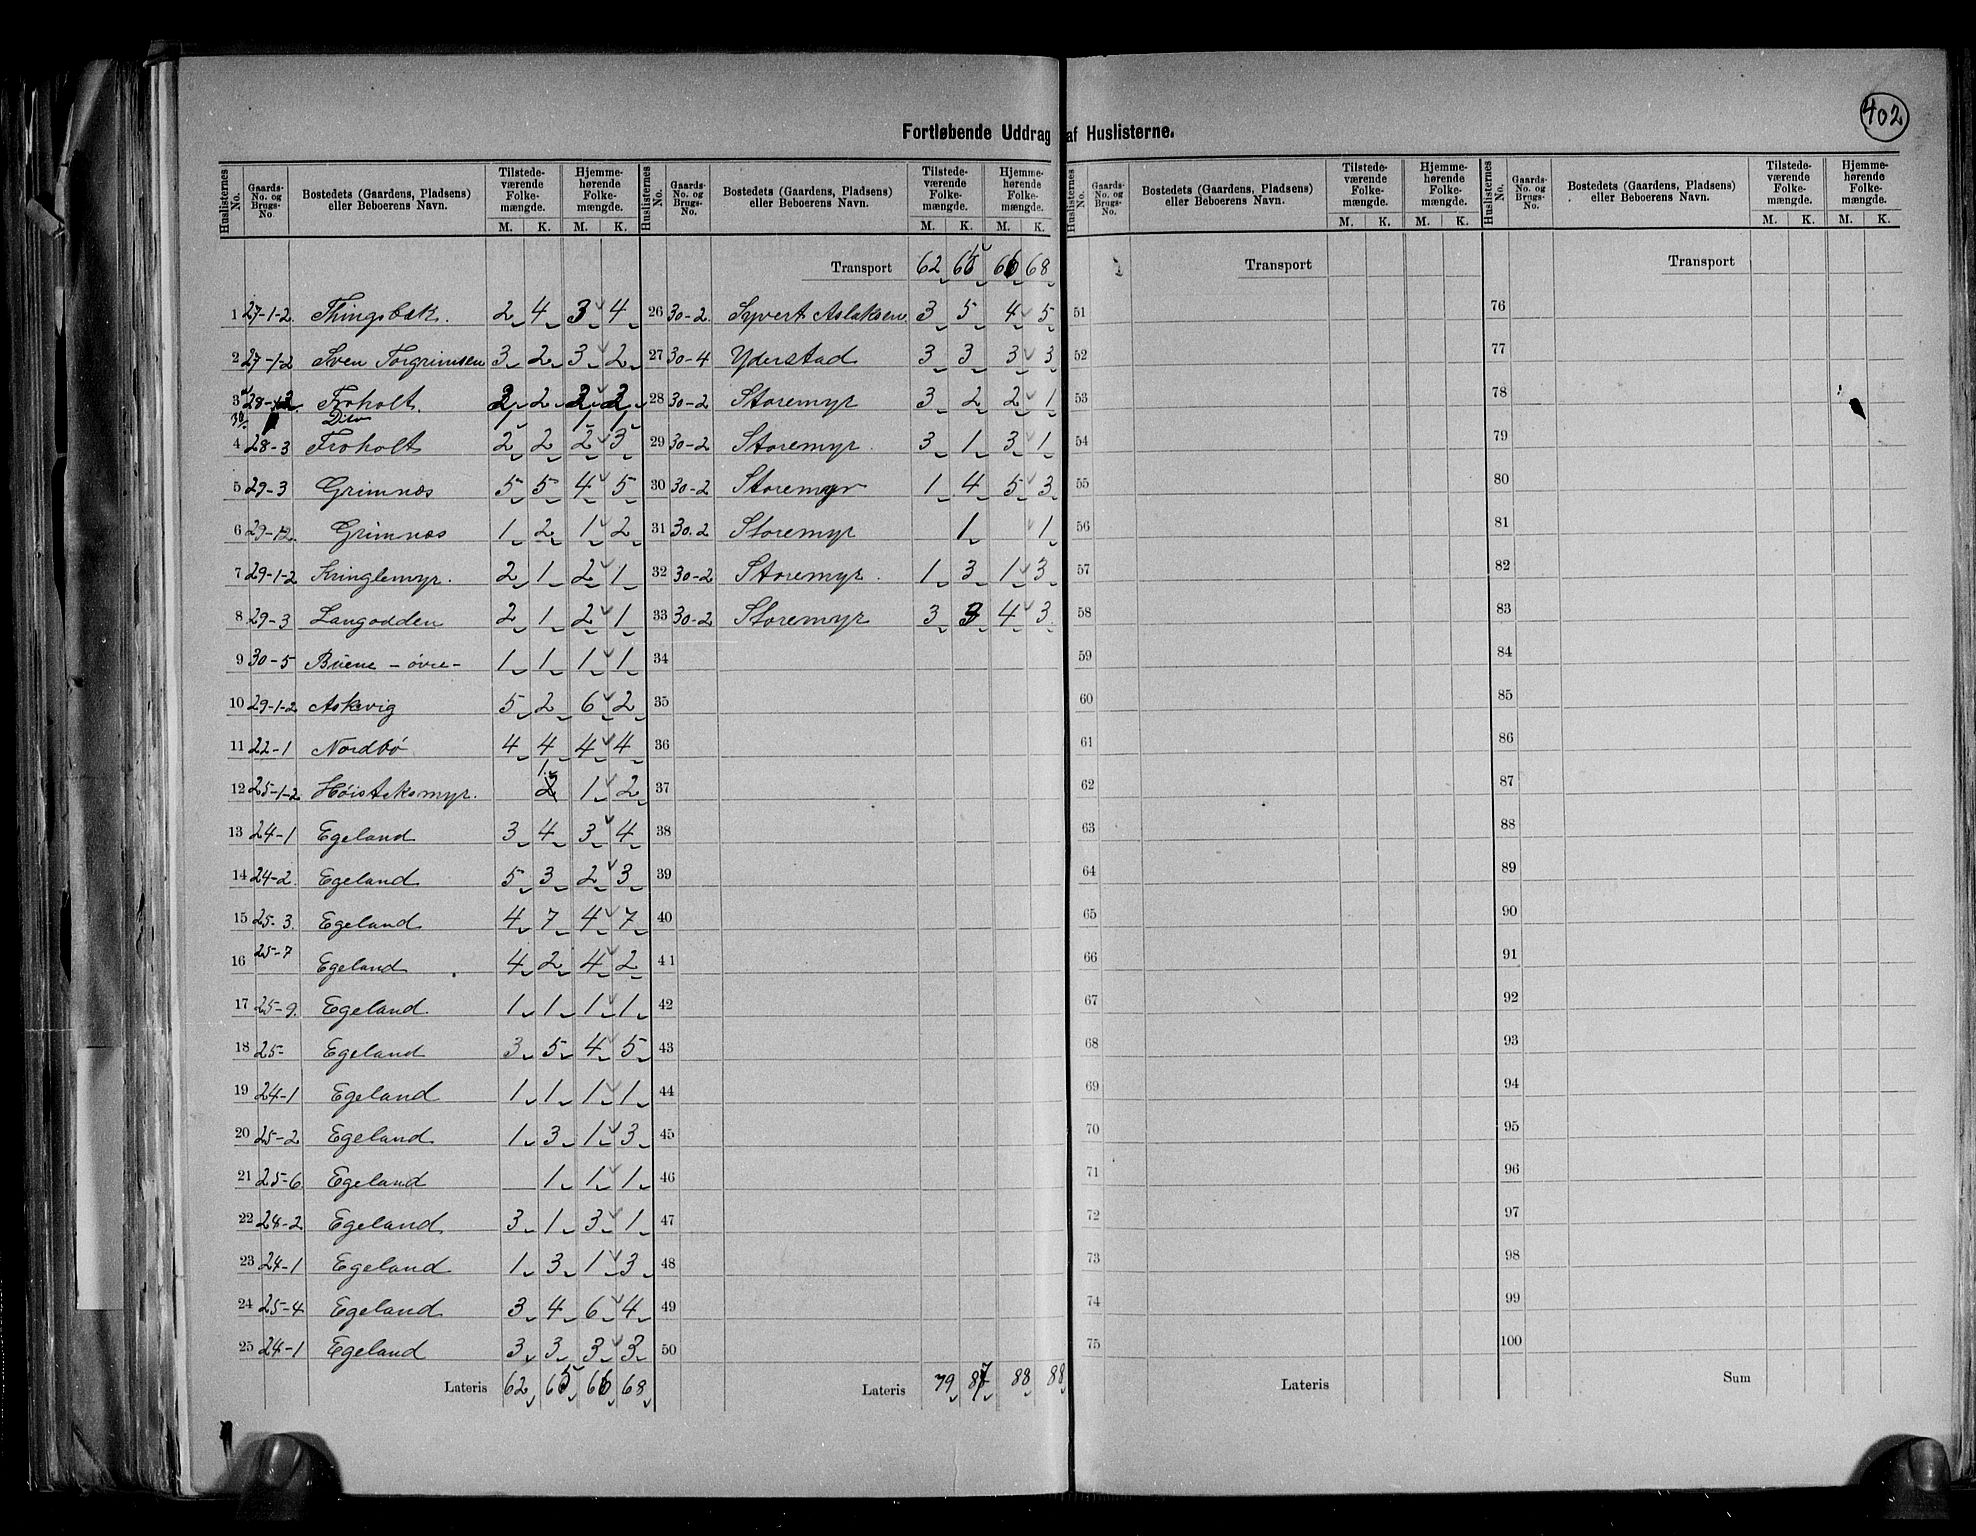 402
Fortløbende Uddrag af Huslisterne.
Huslisternes No. | Gaards-No. og Brugs-No. | Bostedets (Gaardens, Pladsens) eller Beboerens Navn. | Tilstede-værende Folke-mængde. M. K. | Hjemme-hørende Folke-mængde. M. K.
1 27-1-2. Thingsbæk. 2 4 3 4
2 27-1-2 Sven Torgrimsen 3 2 3 2
3 Froholt. 2 2 2 2
Dito 1 1 1
4 28-3 Froholt 2 2 2 3
5 29-3 Grimnæs 5 5 4 5
6 29-12. Grimnæs 1 2 1 2
7 29-1-2 Kringlemyr. 2 1 2 1
8 29-3 Langodden 2 1 2 1
9 30-5 Buene - øvre - 1 1 1 1
10 29-1-2 Askevig 5 2 6 2
11 22-1 Nordbø 4 4 4 4
1
12 25-1-2 Høistaksmyr. 2 1 2
13 24-1 Egeland 3 4 3 4
14 24-2. Egeland 5 3 2 3
15 25-3. Egeland 4 7 4 7
16 25-7 Egeland 4 2 4 2
17 25-9. Egeland. 1 1 1 1
18 25- Egeland 3 5 4 5
19 24-1 Egeland 1 1 1 1
20 25-2 Egeland 1 3 1 3
21 25-6 Egeland 1 1 1
22 24-2 Egeland 3 1 3 1
23 24-1 Egeland 1 3 1 3
24 25-4 Egeland 3 4 6 4
25 24-1 Egeland 3 3 3 3
Lateris 62 65 66 68
Huslisternes No. | Gaards-No. og Brugs-No. | Bostedets (Gaardens, Pladsens) eller Beboerens Navn. | Tilstede-værende Folke-mængde. M. K. | Hjemme-hørende Folke-mængde. M. K.
Transport 62 65 66 68
26 30-2. Syvert Aslaksen 3 5 4 5
27 30-4 Yderstad 3 3 3 3
28 30-2 Storemyr 3 2 2 1
29 30-2 Storemyr. 3 1 3 1
30 30-2 Storemyr 1 4 5 3
31 30.2 Storemyr 1 1
32 30-2 Storemyr. 1 3 1 3
33 30-2 Storemyr 3 3 4 3
34
35
36
37
38
39
40
41
42
43
44
45
46
47
48
49
50
Lateris 79 87 88 88
Huslisternes No. | Gaards-No. og Brugs-No. | Bostedets (Gaardens, Pladsens) eller Beboerens Navn. | Tilstede-værende Folke-mængde. M. K. | Hjemme-hørende Folke-mængde. M. K.
Transport
51
52
53
54
55
56
57
58
59
60
61
62
63
64
65
66
67
68
69
70
71
72
73
74
75
Lateris
Huslisternes No. | Gaards-No. og Brugs-No. | Bostedets (Gaardens, Pladsens) eller Beboerens Navn. | Tilstede-værende Folke-mængde. M. K. | Hjemme-hørende Folke-mængde. M. K.
Transport
76
77
78
79
80
81
82
83
84
85
86
87
88
89
90
91
92
93
94
95
96
97
98
99
100
Sum